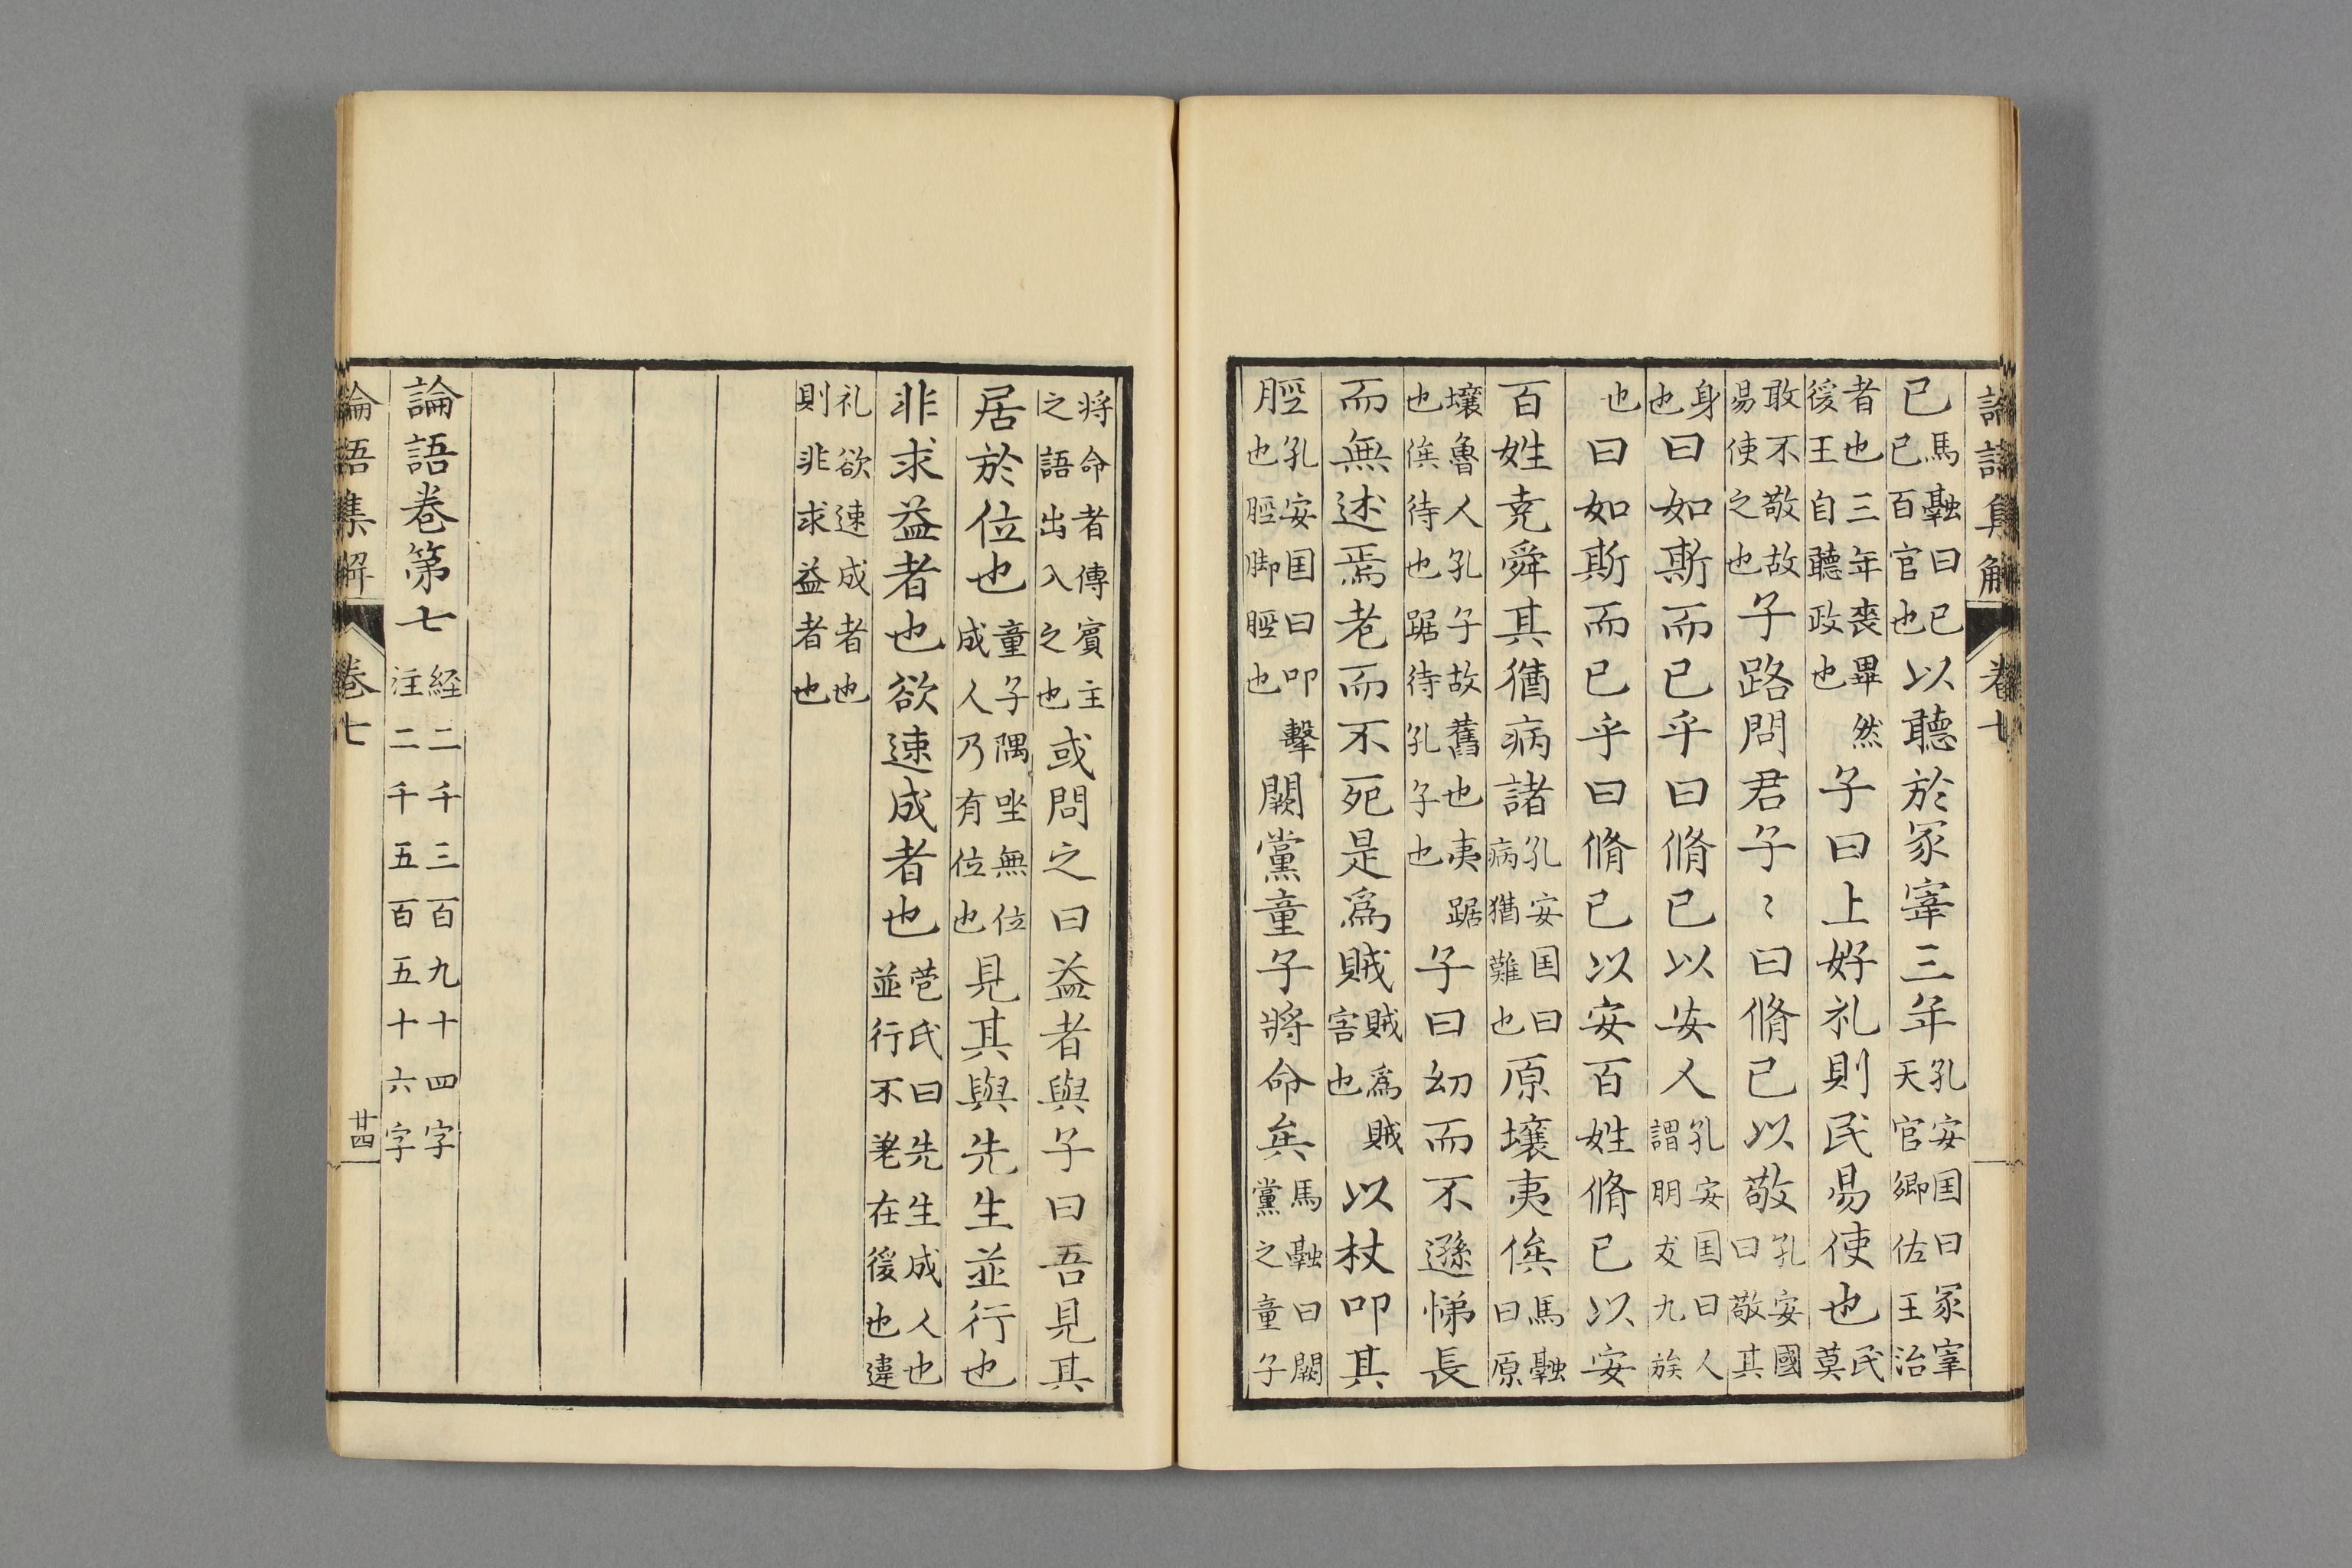 論語集解 卷七
已馬融曰已已百官也以聽於冢宰三年孔安囯曰冢宰天官卿佐王治
者也三年喪畢然後王自聽政也子曰上好礼則民易使也民莫
敢不敬故易使之也子路問君子〻曰脩己以敬孔安國曰敬其
身也曰如斯而已乎曰脩己以安人孔安囯曰人謂朋友九族
也曰如斯而已乎曰脩己以安百姓脩己以安
百姓尭舜其猶病諸孔安囯曰病猶難也原壤夷俟馬融曰原
壤魯人孔子故舊也夷踞也俟待也踞待孔子也子曰幼而不遜悌長
而無述焉老而不死是爲賊賊爲賊害也以杖叩其
脛孔安囯曰叩擊也脛脚脛也闕黨童子將命矣馬融曰闕黨之童子
將命者傳賓主之語出入之也或問之曰益者與子曰吾見其
居於位也童子隅坐無位成人乃有位也見其與先生並行也
非求益者也欲速成者也苞氏曰先生成人也並行不差在後也違
礼欲速成者也則非求益者也
論語卷第七経二千三百九十四字注二千五百五十六字
論語集解 卷七 廿四